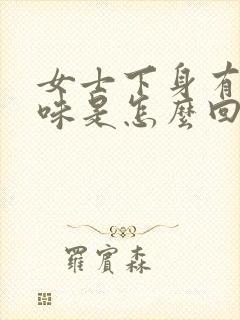 女士下身有
味是怎麼回
羅賓森